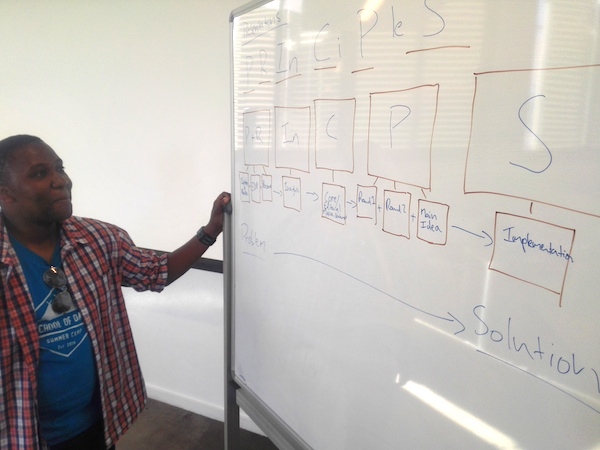 PRInCiPleS
P+R In C P S
Round 1 + Round 2 + Main Idea
Implementation
Problem
Solution
SCHOOL OF DA
SUMMER CAMP